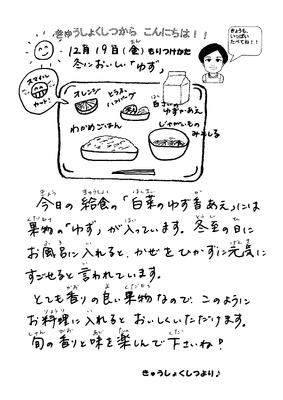 きゅうしょくしつから こんにちは！！
きょうも、
いっぱい
たべてね！！
12月19日(金)もりつけかた
冬においしい「ゆず」
スマイル
カード！
オレンジ
とうふ
ハンバーグ
白さいの
ゆず香あえ
わかめごはん
じゃがいもの
みそしる
今日の給食の「白菜のゆず香あえ」には
果物の「ゆず」が入っています。冬至の日に
お風呂に入れると、かぜをひかずに元気に
すごせると言われています。
とても香りの良い果物なので、このように
お料理に入れるとおいしくいただけます。
旬の香りと味を楽しんで下さいね！
きゅうしょくしつより♪